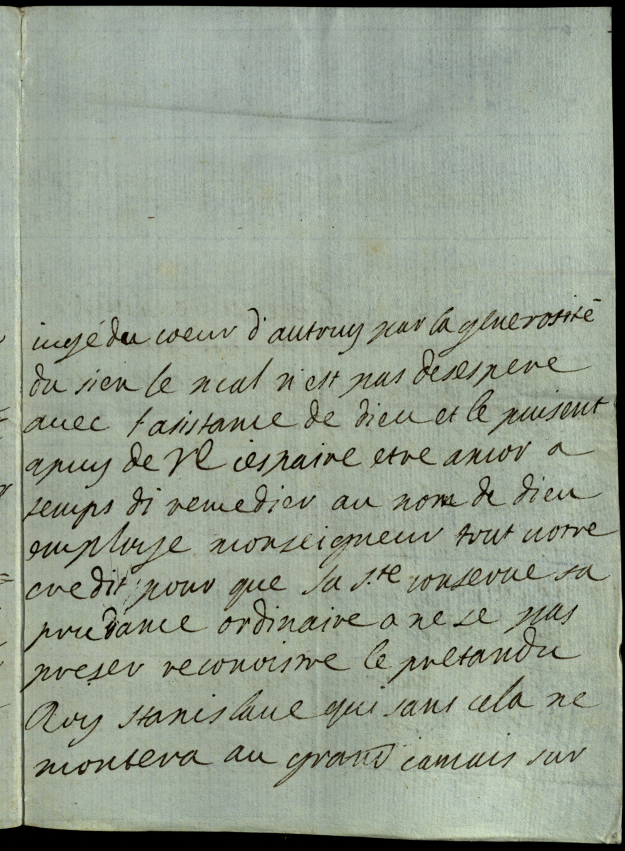 iugé du coeur d'autruy par la generosité
du sien le mal n'est pas desespere
avec l'asistance de dieu et le puisent
apuy de VE iespaire etre ancor a
temps di remedier au nom de dieu
employe monseigneur tout votre
credit pour que sa Ste conserve sa
prudance ordinaire a ne se pas
preser reconoistre le pretandu
Roy stanislaue qui sans cela ne
montera au grand iamais sur